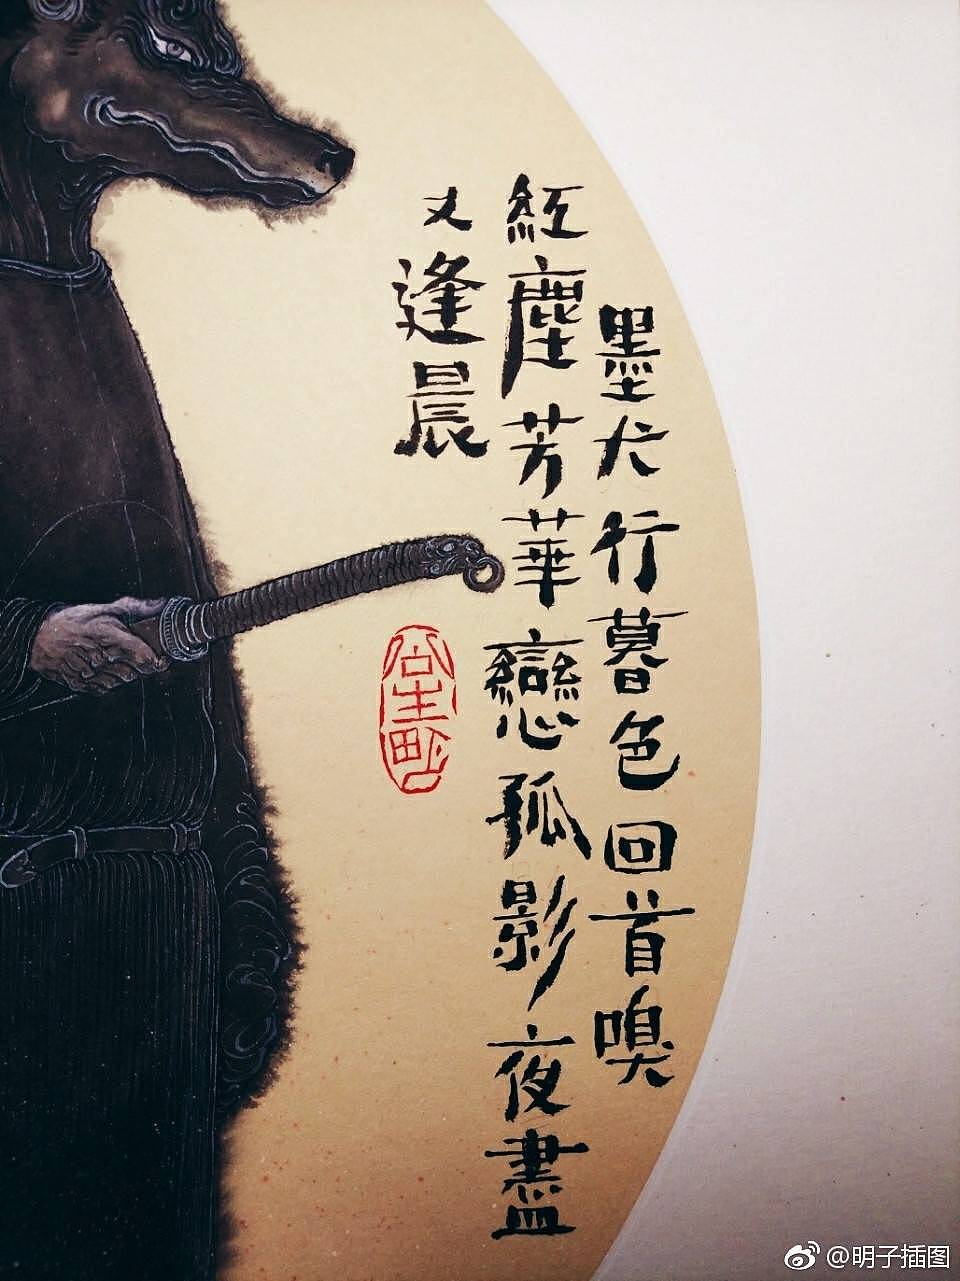 墨犬行暮色回首嗅
紅塵芳華戀孤影夜盡
又逢晨
@明子插图